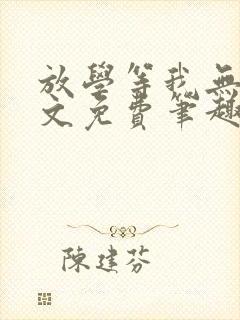 放學等我無
文免費筆趣
陳建芬